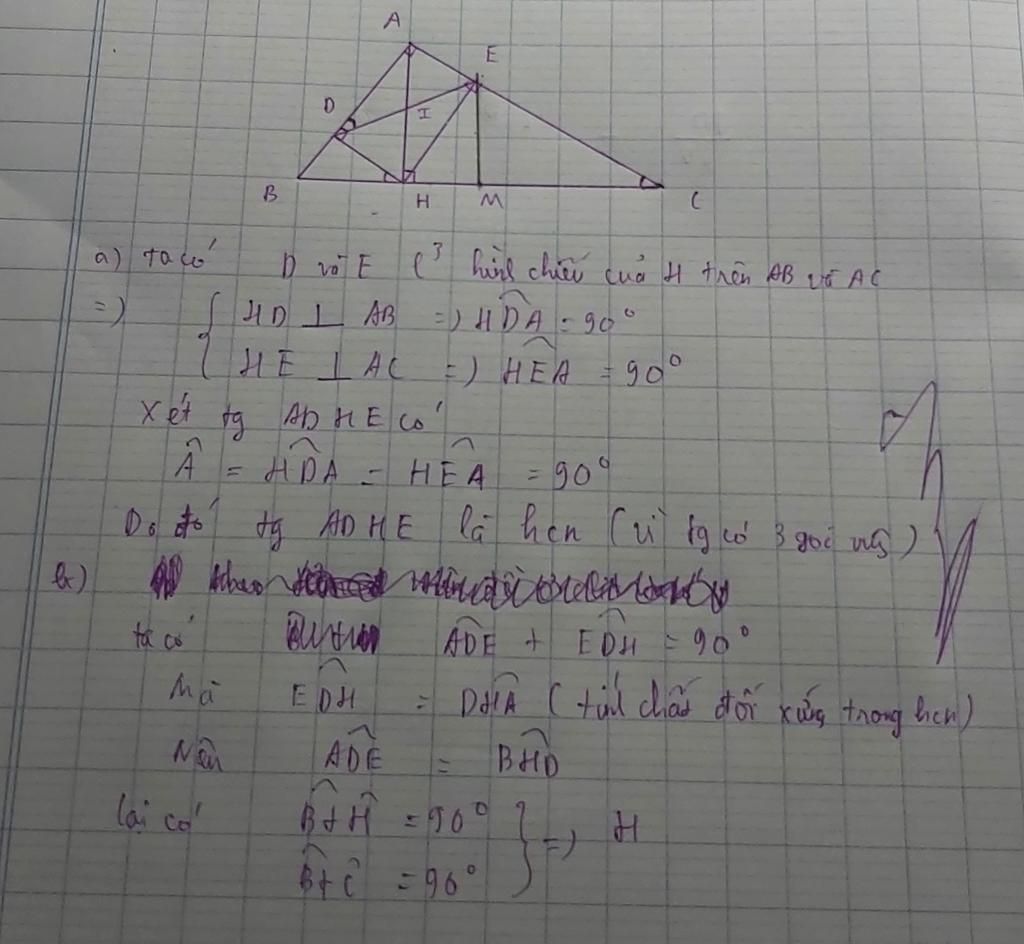 A
E
D
I
B
H
M
C
a) ta có D và E l³ hình chiếu của H trên AB và AC
=> { HD ⊥ AB => HDA = 90°
HE ⊥ AC => HEA = 90°
Xét tg ADHE có
Â = HDA = HEA = 90°
Do đó tg ADHE là hcn (vì tg có 3 góc vg)
b) theo
ta có ADE + EDH = 90°
Mà EDH = DHA (tính chất đối xứng trong hcn)
Nên ADE = BHD
lại có B + H = 90° } => H
B + C = 90°